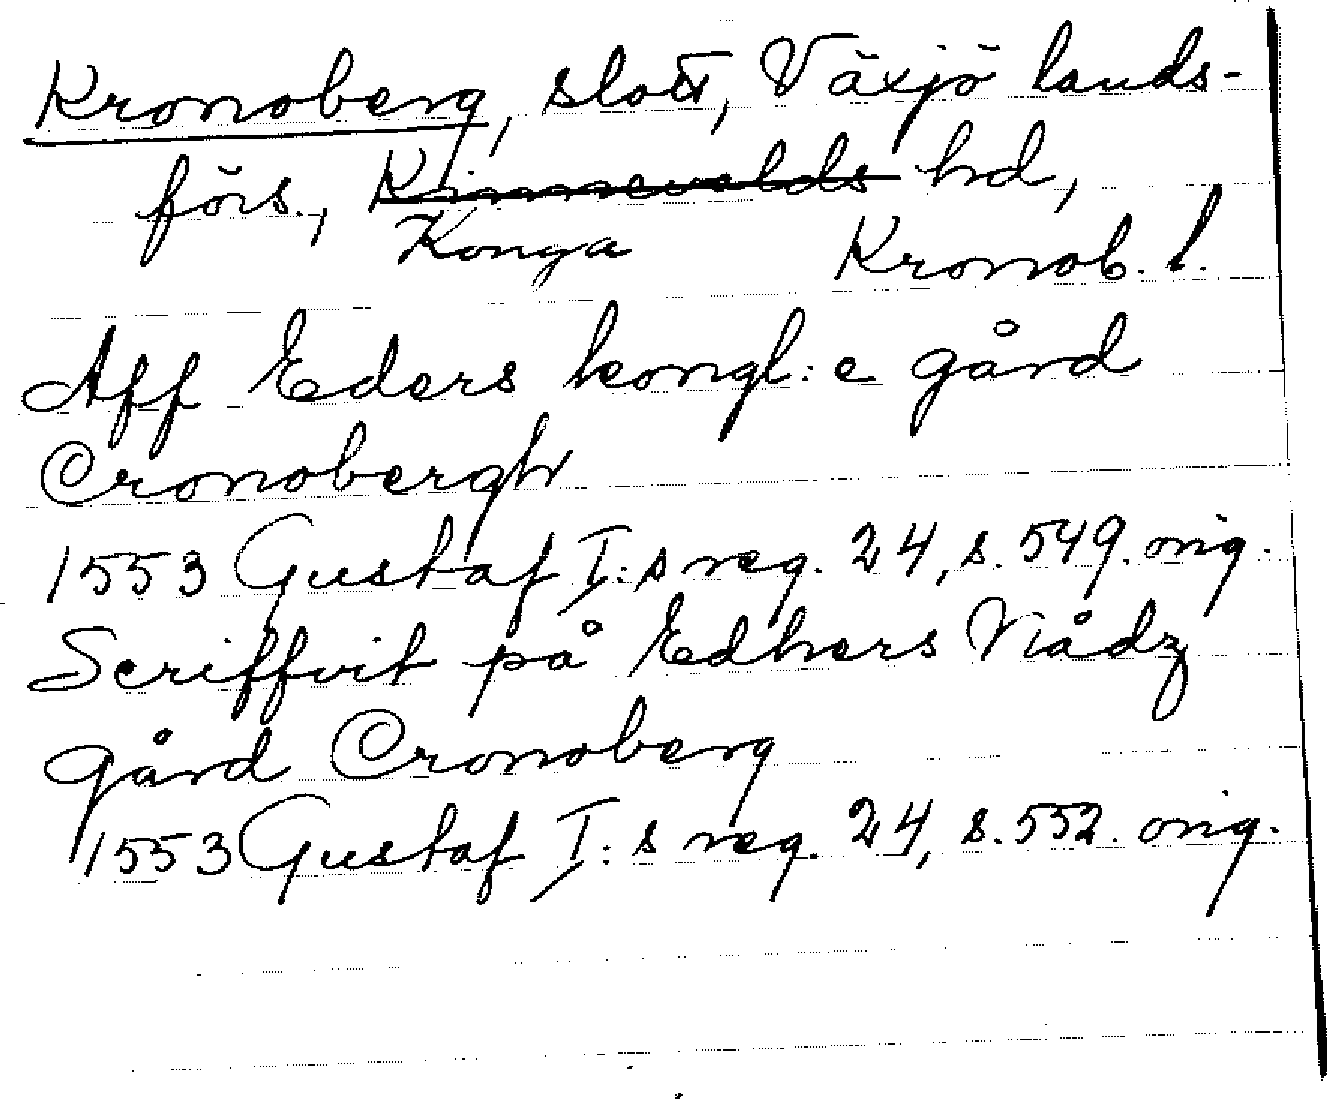 Kronoberg, slott, Växjö lands-
förs., Kinnevalds hd,
Konga Kronob. l.
Aff Eders kongl: e gård
Cronobergh
1553 Gustaf I: s reg. 24, s. 549. orig.
Scriffvit på Edhers Nådz
gård Cronoberg
1553 Gustaf I: s reg. 24, s. 552. orig.